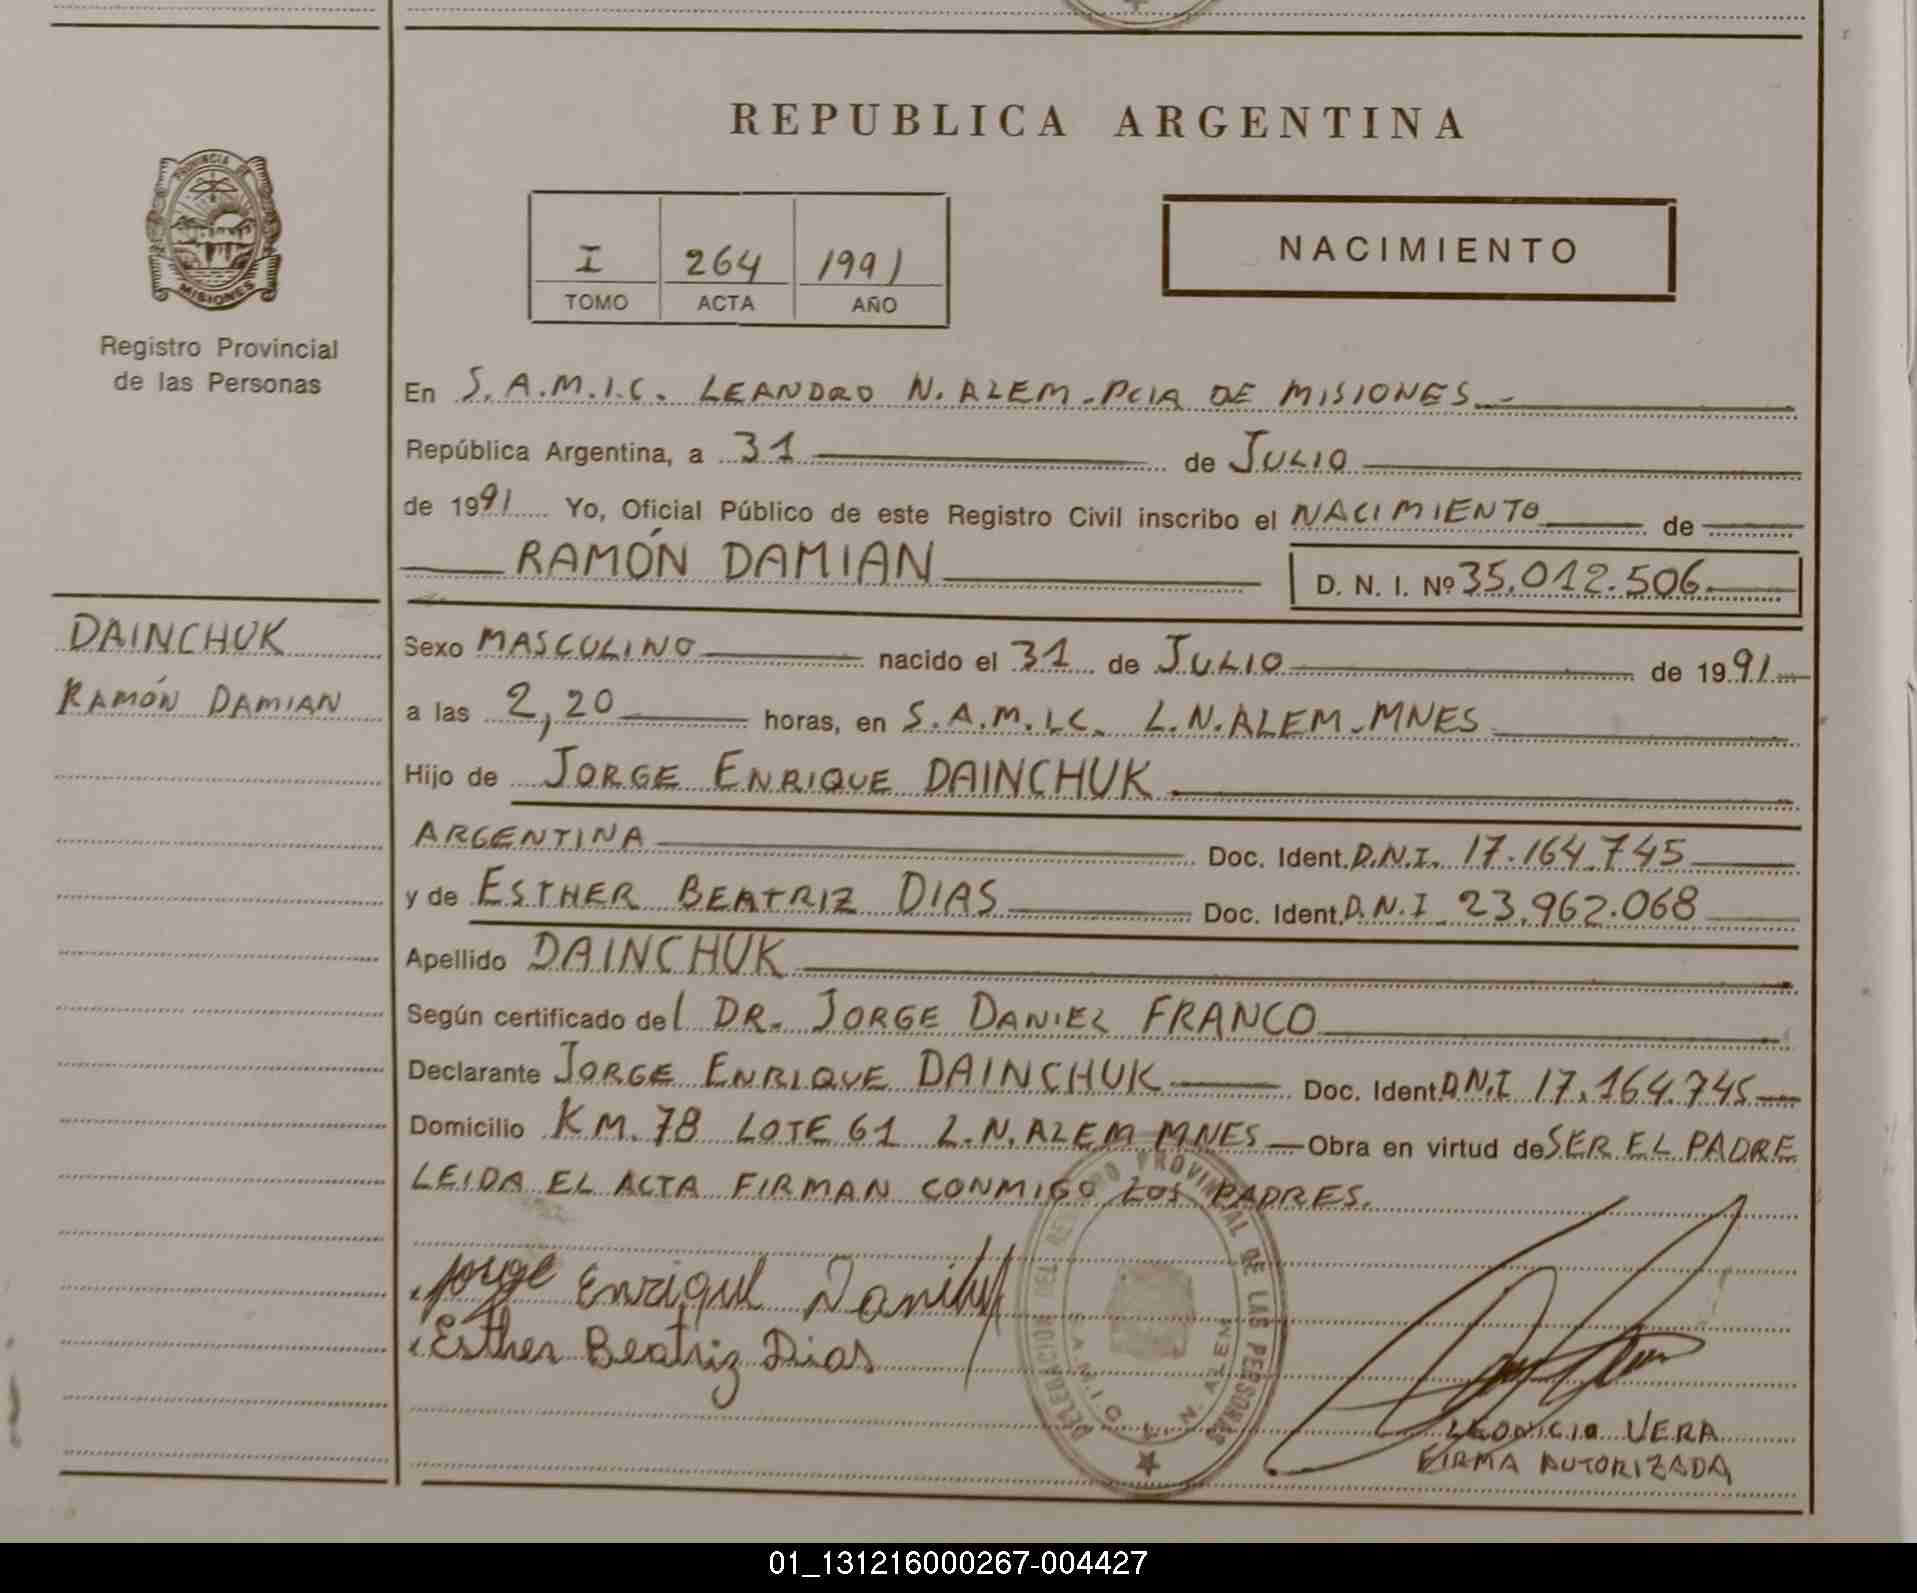 REPUBLICA ARGENTINA
PROVINCIA DE
MISIONES
Registro Provincial
de las Personas
I 264 1991
TOMO ACTA AÑO
NACIMIENTO
En S.A.M.I.C. LEANDRO N. ALEM-PCIA DE MISIONES
República Argentina, a 31 de JULIO
de 1991 Yo, Oficial Público de este Registro Civil inscribo el NACIMIENTO de
RAMÓN DAMIAN D. N. I. Nº 35.012.506
DAINCHUK
RAMÓN DAMIAN
Sexo MASCULINO nacido el 31 de JULIO de 1991
a las 2,20 horas, en S.A.M.I.C. L.N. ALEM-MNES
Hijo de JORGE ENRIQUE DAINCHUK
ARGENTINA Doc. Ident. D.N.I. 17.164.745
y de ESTHER BEATRIZ DIAS Doc. Ident. D.N.I 23.962.068
Apellido DAINCHUK
Según certificado del DR. JORGE DANIEL FRANCO
Declarante JORGE ENRIQUE DAINCHUK Doc. Ident. D.N.I 17.164.745
Domicilio KM. 78 LOTE 61 L.N. ALEM MNES Obra en virtud de SER EL PADRE
LEIDA EL ACTA FIRMAN CONMIGO LOS PADRES.
Jorge Enrique
Esther Beatriz Dias
DELEGACION DEL REGISTRO PROVINCIAL DE LAS PERSONAS
L. N. ALEM
LEONICIO VERA
FIRMA AUTORIZADA
01_131216000267-004427